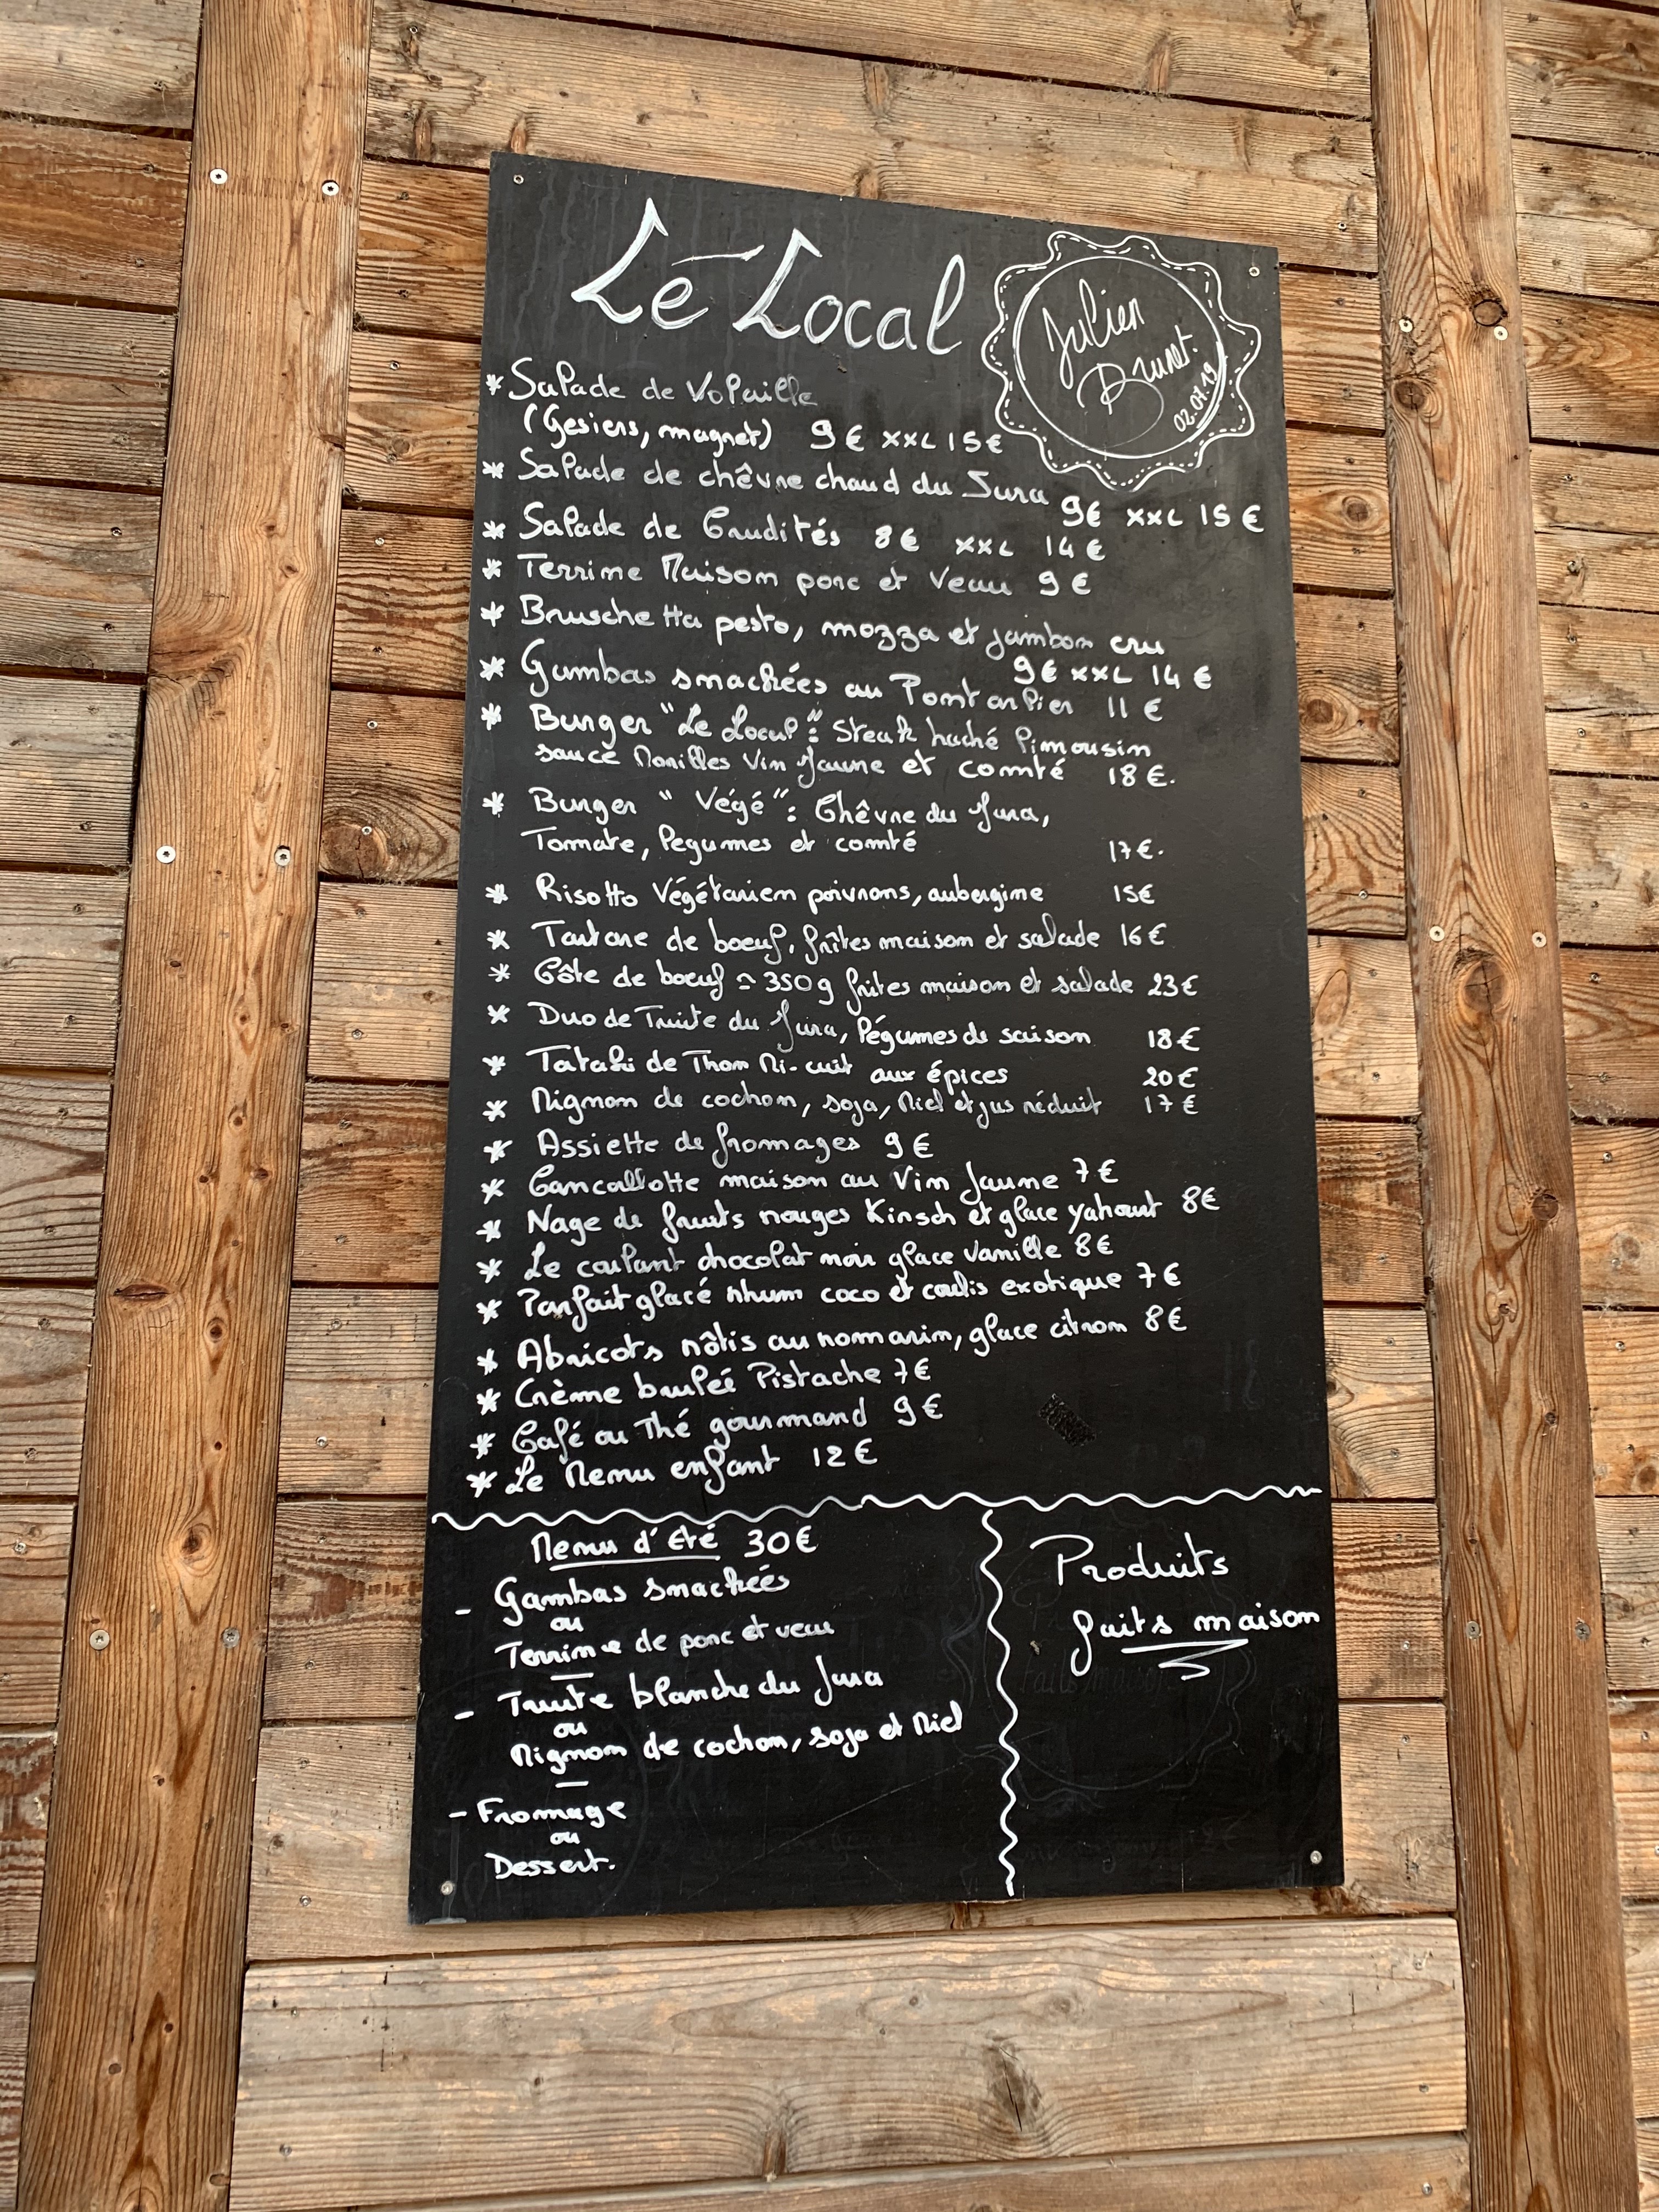 Le Local
Julien
Brunet.
02.07.19
* Salade de Volaille
(Gesiers, magret) 9€ XXL 15€
* Salade de chêvre chaud du Jura
9€ XXL 15€
* Salade de Crudités 8€ XXL 14€
* Terrine Maison porc et Veau 9€
* Bruschetta pesto, mozza et jambon cru
9€ XXL 14€
* Gambas snackées au Pontarlier 11€
* Burger "Le Local": Steak haché limousin
sauce Morilles Vin Jaune et comté 18€.
* Burger "Végé": Chêvre du Jura,
Tomate, légumes et comté 17€.
* Risotto Végétarien poivrons, aubergine 15€
* Tartare de boeuf, frîtes maison et salade 16€
* Côte de boeuf ≃ 350g frites maison et salade 23€
* Duo de Truite du Jura, légumes de saison 18€
* Tataki de Thon Mi-cuit aux épices 20€
* Mignon de cochon, soja, Miel et jus réduit 17€
* Assiette de fromages 9€
* Cancoillotte maison au Vin Jaune 7€
* Nage de fruits rouges Kirsch et glace yahourt 8€
* Le coulant chocolat noir glace vanille 8€
* Parfait glacé rhum coco et coulis exotique 7€
* Abricots rôtis au romarin, glace citron 8€
* Crème brulée Pistache 7€
* Café ou Thé gourmand 9€
* Le Menu enfant 12€
Menu d'Eté 30€
- Gambas snackées
ou
Terrine de porc et veau
- Truite blanche du Jura
ou
Mignon de cochon, soja et Miel
- Fromage
ou
Dessert.
Produits
faits maison